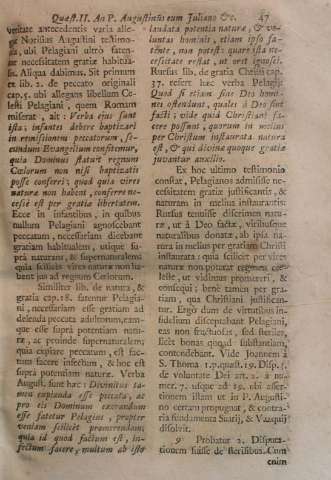 Quæst. II. An P. Augustinus cum Juliano &c. 47
veritate antecedentis varia alle-
Norisius Augustini testimo-
, ubi Pelagiani ultrò faten-
necessitatem gratiæ habitua-
Aliqua dabimus. Sit primum
lib. 2. de peccato originali
cap. 5. ubi allegans libellum Cœ-
lesti Pelagiani, quem Romam
miserat, ait: Verba ejus sunt
ista; infantes debere baptizari
in remissionem peccatorum, se-
cundum Evangelium confitemur,
quia Dominus statuit regnum
Cœlorum non nisi baptizatis
posse conferri; quod quia vires
naturæ non habent, conferre ne-
cesse est per gratiæ libertatem.
Ecce in infantibus, in quibus
nullum Pelagiani agnoscebant
peccatum, necessariam dicebant
gratiam habitualem, utique su-
prà naturam, & supernaturalem;
quia scilicèt vires naturæ non ha-
bent jus ad regnum Cœlorum.
Similiter lib. de natura, &
gratia cap. 18. fatentur Pelagia-
ni, necessariam esse gratiam ad
delenda peccata adultorum, eam-
que esse suprà potentiam natu-
ræ, ac proinde supernaturalem;
quia expiare peccatum, est fac-
tum facere infectum, & hoc est
suprà potentiam naturæ. Verba
August. sunt hæc: Divinitus ta-
men expianda esse peccata, ac
pro eis Dominum exorandum
esse fatetur Pelagius, propter
veniam scilicet promerendam;
quia id quod factum est, in-
fectum facere, multum ab isto
laudata potentia naturæ, & vo-
luntas hominis, etiam ipso fa-
tente, non potest: quare ista ne-
cessitate restat, ut oret ignosci.
Rursus lib. de gratia Christi cap.
37. refert hæc verba Pelagij:
Quod si etiam sine Deo homi-
nes ostendunt, quales à Deo sint
facti; vide quid Christiani fa-
cere possunt, quorum in melius
per Christum instaurata natura
est, & qui divinæ quoque gratiæ
juvantur auxilio.
Ex hoc ultimo testimonio
constat, Pelagianos admisisse ne-
cessitatem gratiæ justificantis, &
naturam in melius instaurantis:
Rursus tenuisse discrimen natu-
ræ, ut à Deo factæ, viribusque
naturalibus donatæ, ab ipsa na-
tura in melius per gratiam Christi
instaurata: quia scilicet per vires
naturæ non poterat regnum cœ-
leste, ut vidimus promereri, &
consequi; benè tamen per gra-
tiam, qua Christiani justifican-
tur. Ergo dum de virtutibus in-
fidelium disceptabant Pelagiani,
eas non fructuosas, sed steriles,
licèt bonas quoad substantiam,
contendebant. Vide Joannem à
S. Thoma 1. p. quæst. 19. Disp. 5.
de voluntate Dei art. 2. à nu-
mer. 7. usque ad 19. ubi asser-
tionem istam ut in P. Augusti-
no certam propugnat, & contra-
ria fundamenta Suarij, & Vazquij
dissolvit.
9 Probatur 2. Disputa-
tionem fuisse de sterilibus. Cum
enim